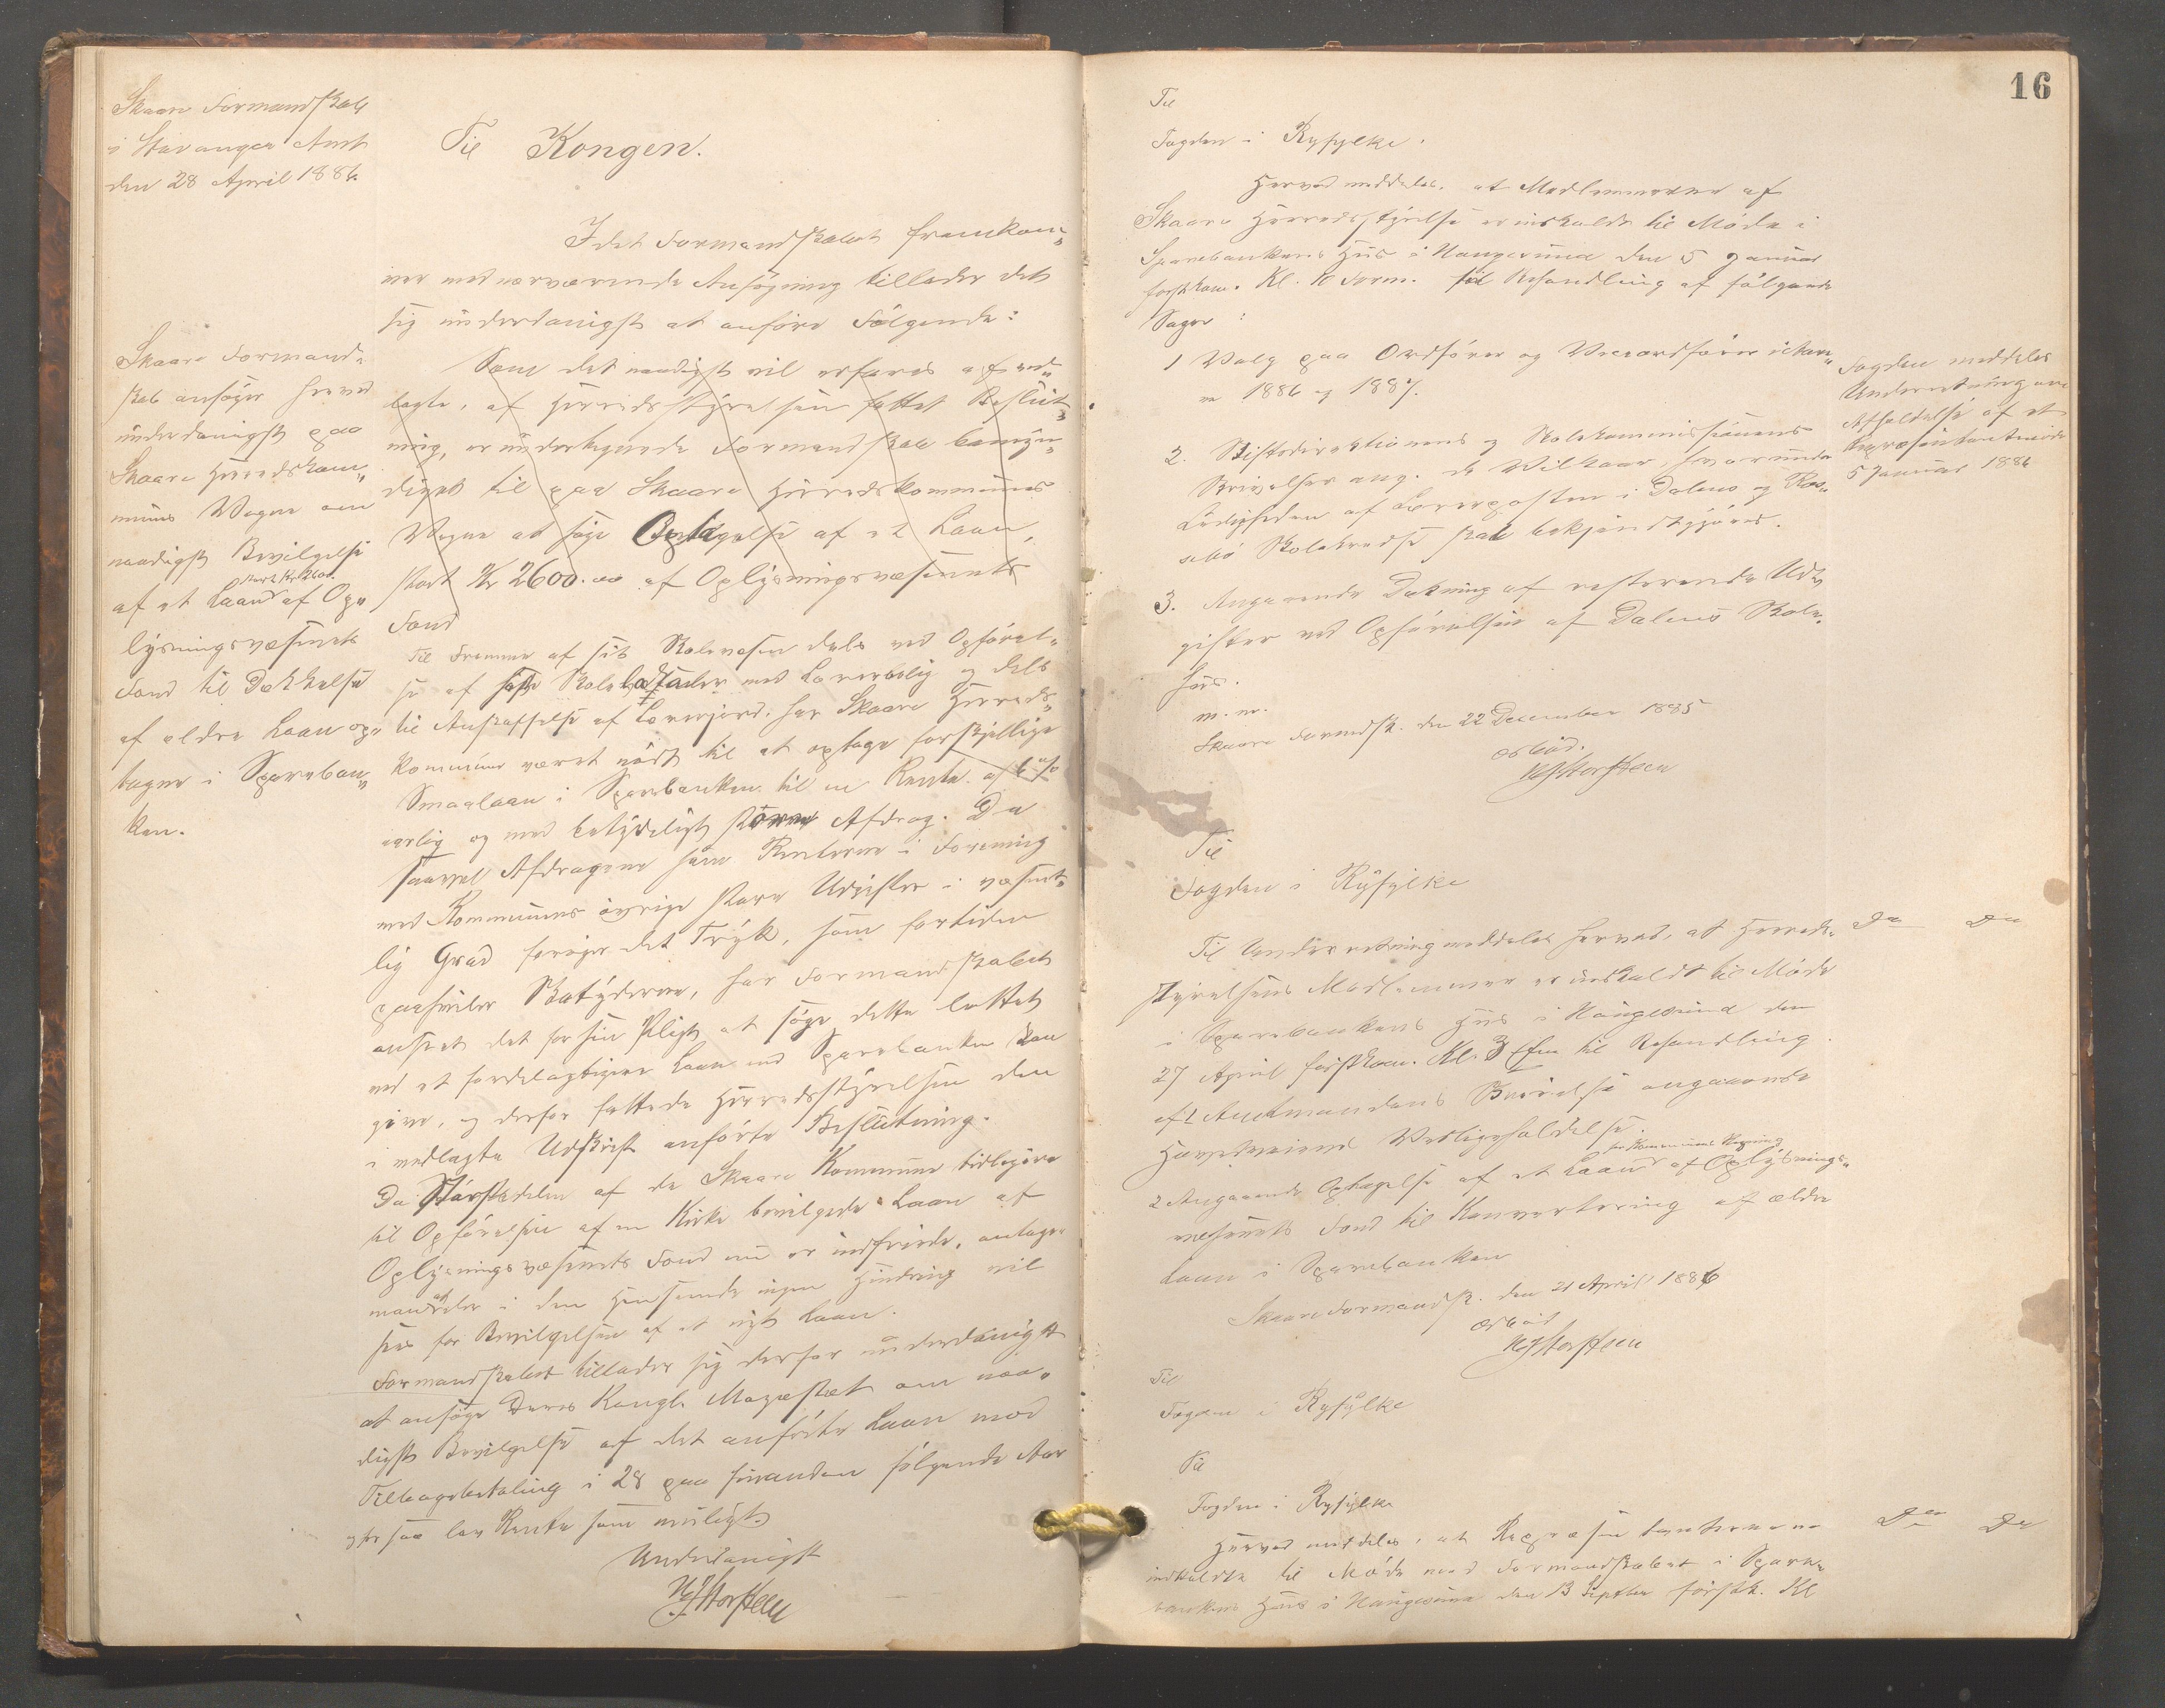 Skaare Formandskab
i Stavanger Amt
den 28 April 1886.
Til Kongen.
Idet Formandskabet fremkom„
mer med nærværende Ansøgning tillader det
sig underdanigst at anføre Følgende:
Skaare Formand„
skab ansøger herved
underdanigst paa
Skaare Herredskom„
munes Vegne om
naadigst Bevilgelse
stort Kr 2600.
af et Laan af Op„
lysningsvæsenets
Fond til Dækkelse
af ældre Laan op„
tagne i Spareban„
ken.
Som det naadigst vil erfares af ved„
lagte, af Herredsstyrelsen fattet Beslut„
ning, er undertegnede Formandskab bemyn„
diget til paa Skaare Herredskommunes
Vegne at søge Optagelse af et Laan,
stort Kr 2600.00 af Oplysningsvæsenets
Fond
Til Fremme af sit Skolevæsen dels ved Opførel„
se af Skolelokaler med Lærerbolig og dels
til Anskaffelse af Lærerjord, har Skaare Herreds„
kommune været nødt til at optage forskjellige
Smaalaan i Sparebanken til en Rente af 6 %
aarlig og med betydeligt større Afdrag. Da
saavel Afdragene som Renterne i Forening
med Kommunens øvrige store Udgifter i væsent„
lig Grad forøger det Tryk, som fortiden
paahviler Skatyderne, har Formandskabet
anseet det for sin Pligt at søge dette lettet
ved et fordelagtigere Laan end Sparebanken kan
give, og derfor fattede Herredsstyrelsen den
i vedlagte Udskrift anførte Beslutning.
Da Størstedelen af de Skaare Kommune tidligere
til Opførelsen af en Kirke bevilgede Laan af
Oplysningsvæsenets Fond nu er indfriede, antager
man at der i den Henseende ingen Hindring vil
sees for Bevilgelsen af et nyt Laan.
Formandskabet tillader sig derfor underdanigst
at ansøge Deres Kongl. Majestæt om naa„
digst Bevilgelse af det anførte Laan mod
Tilbagebetaling i 28 paa hinanden følgende Aar
og for saa lav Rente som muligt.
Underdanigst
16
Til
Fogden i Ryfylke.
Herved meddeles, at Medlemmerne af
Skaare Herredsstyrelse er indkaldt til Møde i
Sparebankens Hus i Haugesund den 5 Januar
førstkom. Kl. 10 Form. til Behandling af følgende
Sager:
1 Valg paa Ordfører og Viceordfører i Aare„
ne 1886 og 1887.
Fogden meddeles
Underretning om
Afholdelse af et
Repræsentantmøde
5 Januar 1886
2. Stiftsdirektionens og Skolekommissionens
Skrivelser ang. de Vilkaar, hvorunder
Ledigheden af Lærerposten i Dalens og Ros„
sebø Skolekredse skal bekjendtgjøres.
3. Angaaende Dækning af resterende Ud„
gifter ved Opførelsen af Dalens Skole„
hus.
m. m.
Skaare Formdsk. den 22 December 1885
ærbød.
Til
Fogden i Ryfylke
Til Underretning meddeles herved, at Herreds„
Do Do
styrelsens Medlemmer er indkaldt til Møde
i Sparebankens Hus i Haugesund den
27 April førstkom. Kl. 3 Efm til Behandling
af 1 Amtmandens Skrivelse angaaende
Hovedveienes Vedligeholdelse.
for Kommunens Regning
2 Angaaende Optagelse af et Laan af Oplysnings„
væsenets Fond til Konvertering af ældre
Laan i Sparebanken
Skaare Formandsk. den 21 April 1886
ærbød
Til
Fogden i Ryfylke
Til
Fogden i Ryfylke
Herved meddeles, at Repræsentanterne er
Do Do
indkaldte til Møde med Formandskabet i Spare„
bankens Hus i Haugesund den 13 Septbr førstk. Kl